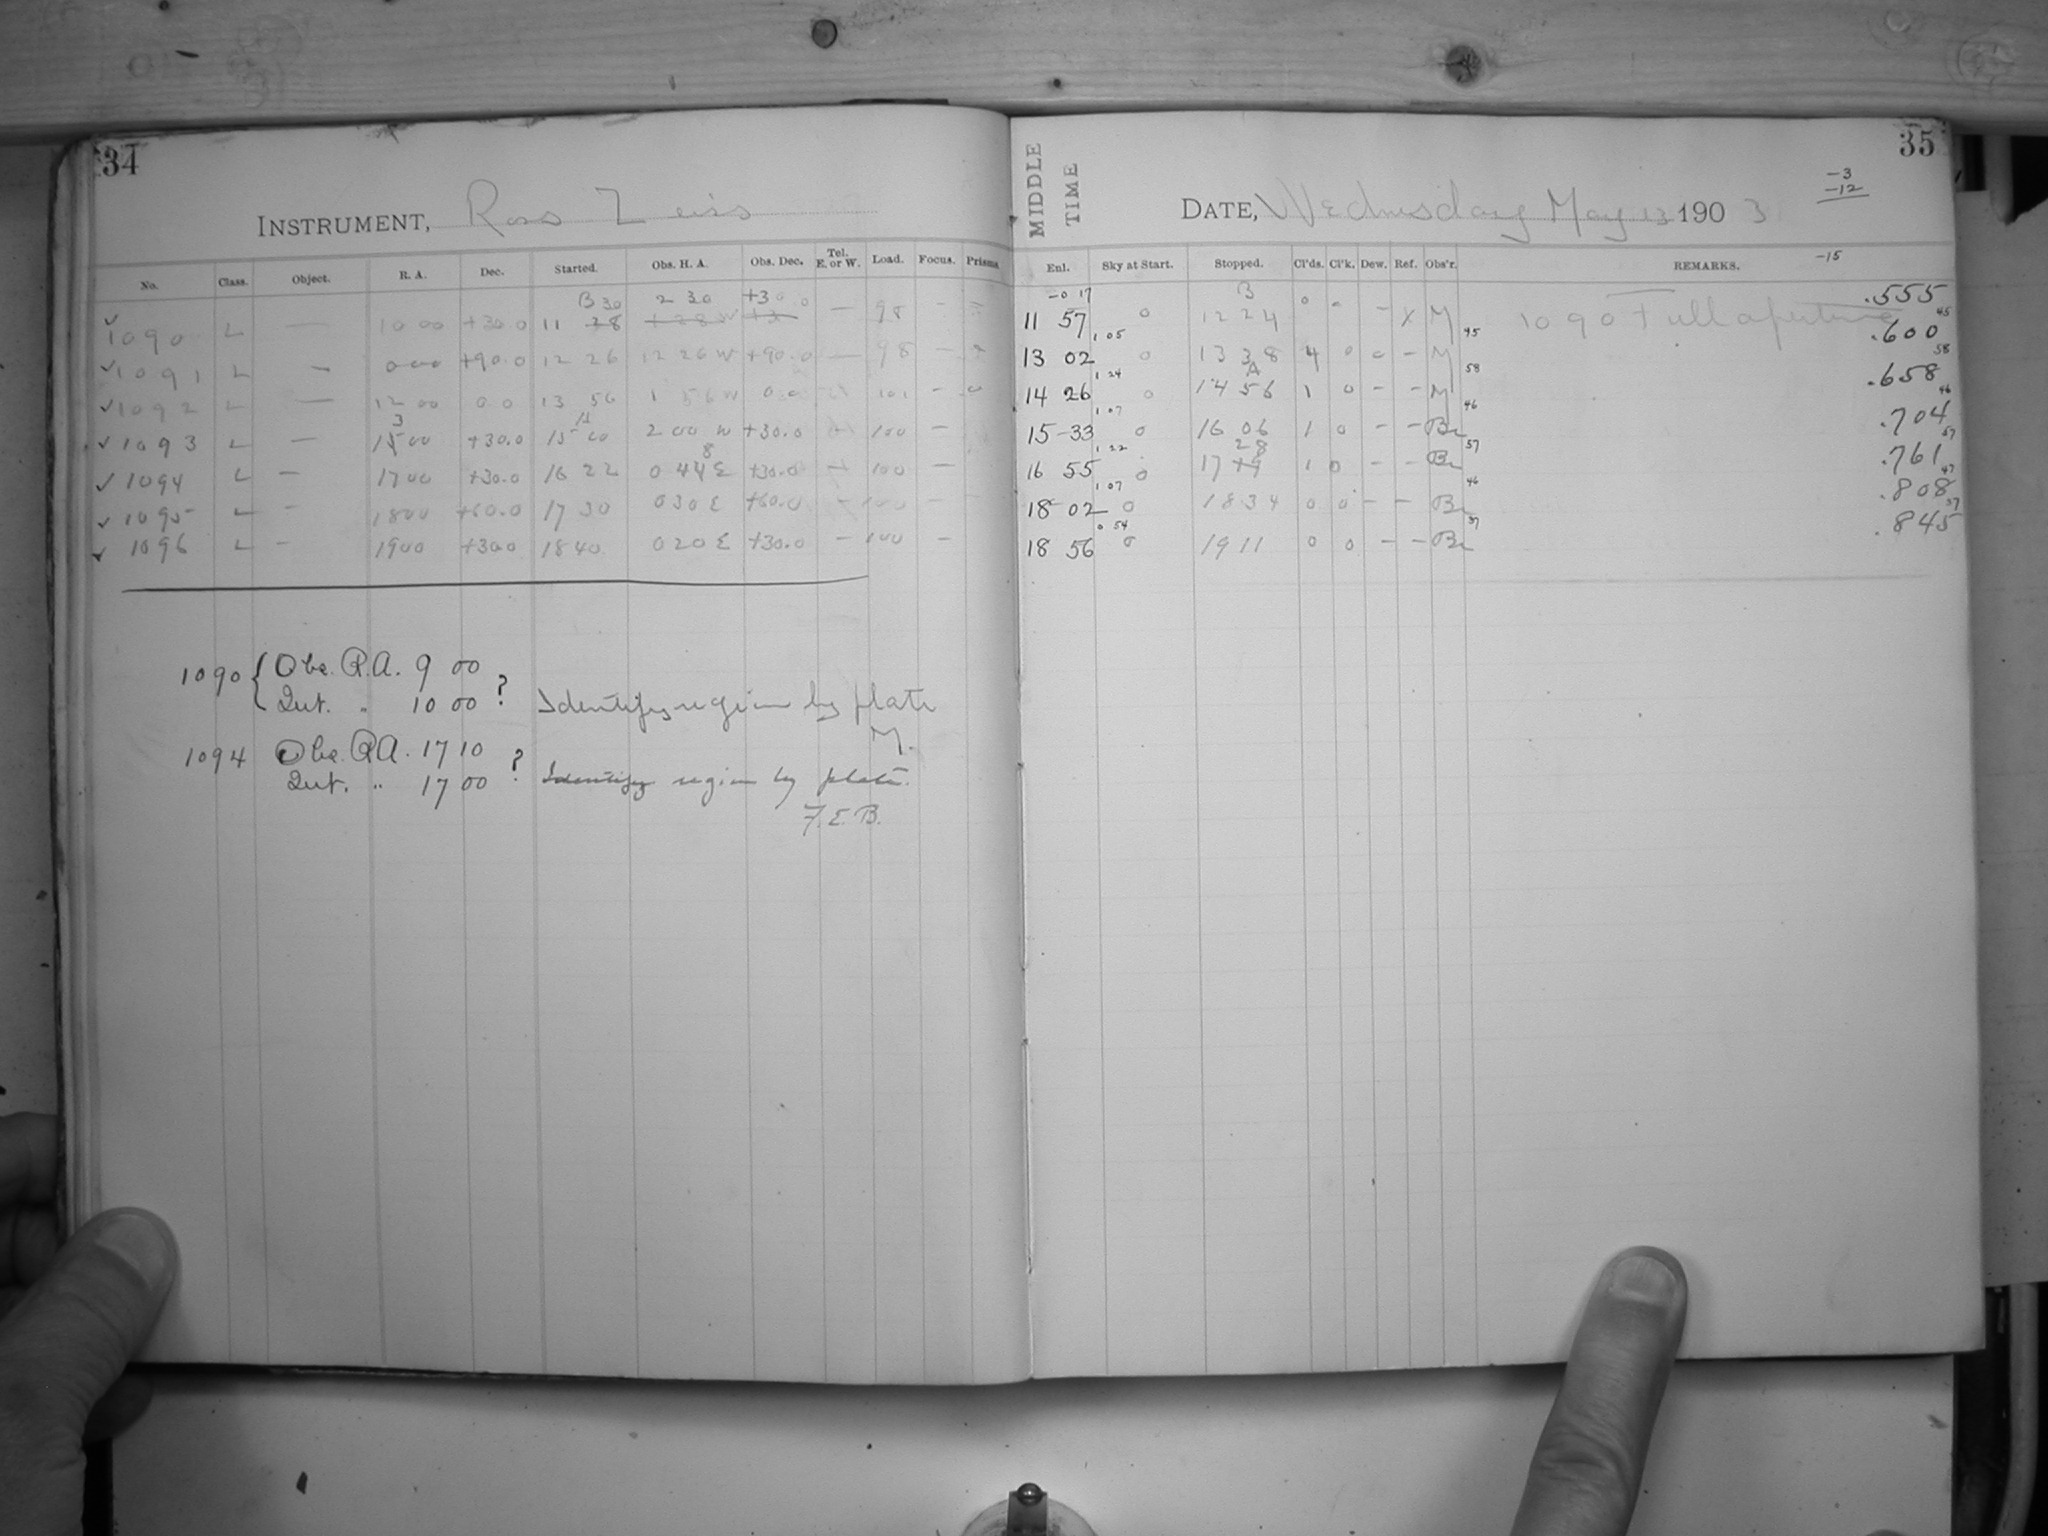 34
INSTRUMENT, Ross Zeiss
No. Class. Object. R. A. Dec. Started. Obs. H. A. Obs. Dec. Tel. E. or W. Load. Focus. Prisms
B 30 2 30 +30 0
1090 L — 10 00 +30.0 11 38 1 28 W +3 — 98 -
1091 L — 0 00 +90.0 12 26 12 26 W +90.0 — 98 —
1092 L — 12 00 0 0 13 56 1 56 W 0 0 101 -
3 A
1093 L — 15 00 +30.0 15 00 2 00 W +30.0 100 —
8
1094 L — 17 00 +30.0 16 22 0 44 E +30.0 — 100 —
1095 L — 18 00 +60.0 17 30 0 30 E +60.0 — 100 -
1096 L - 19 00 +30.0 18 40 0 20 E +30.0 — 100 -
1090 { Obs. R.A. 9 00
Int. " 10 00 ? Identify region by plate
M.
1094 Obs. R.A. 17 10
Int. " 17 00 ? Identify region by plate.
F.E.B.
35
MIDDLE TIME
-3
-12
DATE, Wednesday May 13 1903
-15
Enl. Sky at Start. Stopped. Cl'ds. Cl'k. Dew. Ref. Obs'r. REMARKS.
-0 17 B
11 57 0 12 24 0 - - x M 1090 Full aperture .555
1 05 45 45
13 02 0 13 38 4 0 0 - M .600
1 24 A 58 58
14 26 0 14 56 1 0 - - M .658
1 07 46 46
15-33 0 16 06 1 0 - - Br .704
1 22 28 57 57
16 55 0 17 19 1 0 - - Br .761
1 07 46 47
18 02 0 18 34 0 0 - - Br .808
0 54 37 37
18 56 0 19 11 0 0 - - Br .845